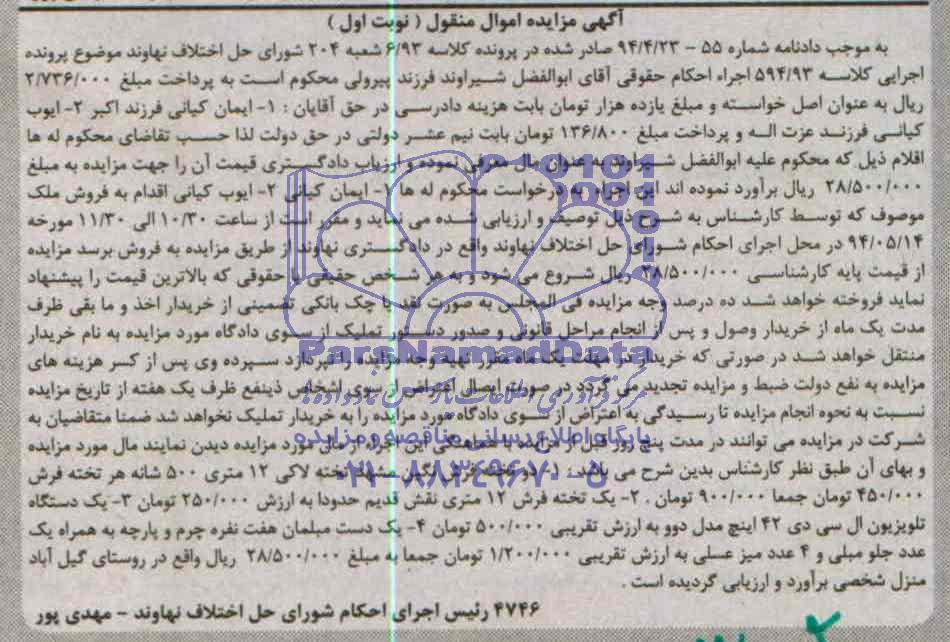 آگهی مزایده اموال منقول ( نوبت اول )
به موجب دادنامه شماره ۵۵ - ۹۴/۴/۲۳ صادر شده در پرونده کلاسه ۶/۹۳ شعبه ۲۰۴ شورای حل اختلاف نهاوند موضوع پرونده
اجرایی کلاسه ۵۹۴/۹۳ اجراء احکام حقوقی آقای ابوالفضل شیراوند فرزند پیرولی محکوم است به پرداخت مبلغ ۲/۷۳۶/۰۰۰
ریال به عنوان اصل خواسته و مبلغ یازده هزار تومان بابت هزینه دادرسی در حق آقایان : ۱- ایمان کیانی فرزند اکبر ۲- ایوب
کیانی فرزند عزت اله و پرداخت مبلغ ۱۳۶/۸۰۰ تومان بابت نیم عشر دولتی در حق دولت لذا حسب تقاضای محکوم له ها
اقلام ذیل که محکوم علیه ابوالفضل شیراوند به عنوان مال معرفی نموده و ارزیاب دادگستری قیمت آن را جهت مزایده به مبلغ
۲۸/۵۰۰/۰۰۰ ریال برآورد نموده اند این اجراء به درخواست محکوم له ها ۱- ایمان کیانی ۲- ایوب کیانی اقدام به فروش ملک
موصوف که توسط کارشناس به شرح ذیل توصیف و ارزیابی شده می نماید و مقرر است از ساعت ۱۰/۳۰ الی ۱۱/۳۰ مورخه
۹۴/۰۵/۱۴ در محل اجرای احکام شورای حل اختلاف نهاوند واقع در دادگستری نهاوند از طریق مزایده به فروش برسد مزایده
از قیمت پایه کارشناسی ۲۸/۵۰۰/۰۰۰ ریال شروع می شود و به هر شخص حقیقی یا حقوقی که بالاترین قیمت را پیشنهاد
نماید فروخته خواهد شد ده درصد وجه مزایده فی المجلس به صورت نقد یا چک بانکی تضمینی از خریدار اخذ و ما بقی ظرف
مدت یک ماه از خریدار وصول و پس از انجام مراحل قانونی و صدور دستور تملیک از سوی دادگاه مورد مزایده به نام خریدار
منتقل خواهد شد در صورتی که خریدار در مهلت یک ماه مقرر بقیه وجه مزایده را نپردازد سپرده وی پس از کسر هزینه های
مزایده به نفع دولت ضبط و مزایده تجدید می گردد در صورت ایصال اعتراض از سوی اشخاص ذینفع ظرف یک هفته از تاریخ مزایده
نسبت به نحوه انجام مزایده تا رسیدگی به اعتراض از سوی دادگاه مورد مزایده را به خریدار تملیک نخواهد شد ضمنا متقاضیان به
شرکت در مزایده می توانند در مدت پنج روز قبل از مزایده با هماهنگی این اجراء از مال مورد مزایده دیدن نمایند مال مورد مزایده
و بهای آن طبق نظر کارشناس بدین شرح می باشد : ۱- دو تخته فرش نگین مشهد تخته لاکی ۱۲ متری ۵۰۰ شانه هر تخته فرش
۴۵۰/۰۰۰ تومان جمعا ۹۰۰/۰۰۰ تومان . ۲- یک تخته فرش ۱۲ متری نقش قدیم حدودا به ارزش ۲۵۰/۰۰۰ تومان ۳- یک دستگاه
تلویزیون ال سی دی ۴۲ اینچ مدل دوو به ارزش تقریبی ۵۰۰/۰۰۰ تومان ۴- یک دست مبلمان هفت نفره چرم و پارچه به همراه یک
عدد جلو مبلی و ۴ عدد میز عسلی به ارزش تقریبی ۱/۲۰۰/۰۰۰ تومان جمعا به مبلغ ۲۸/۵۰۰/۰۰۰ ریال واقع در روستای گیل آباد
منزل شخصی برآورد و ارزیابی گردیده است .
۴۷۴۶ رئیس اجرای احکام شورای حل اختلاف نهاوند - مهدی پور
ParsNamadData
پایگاه اطلاع رسانی مناقصه و مزایده
۰۲۱-۸۸۳۴۹۶۷۰-۵